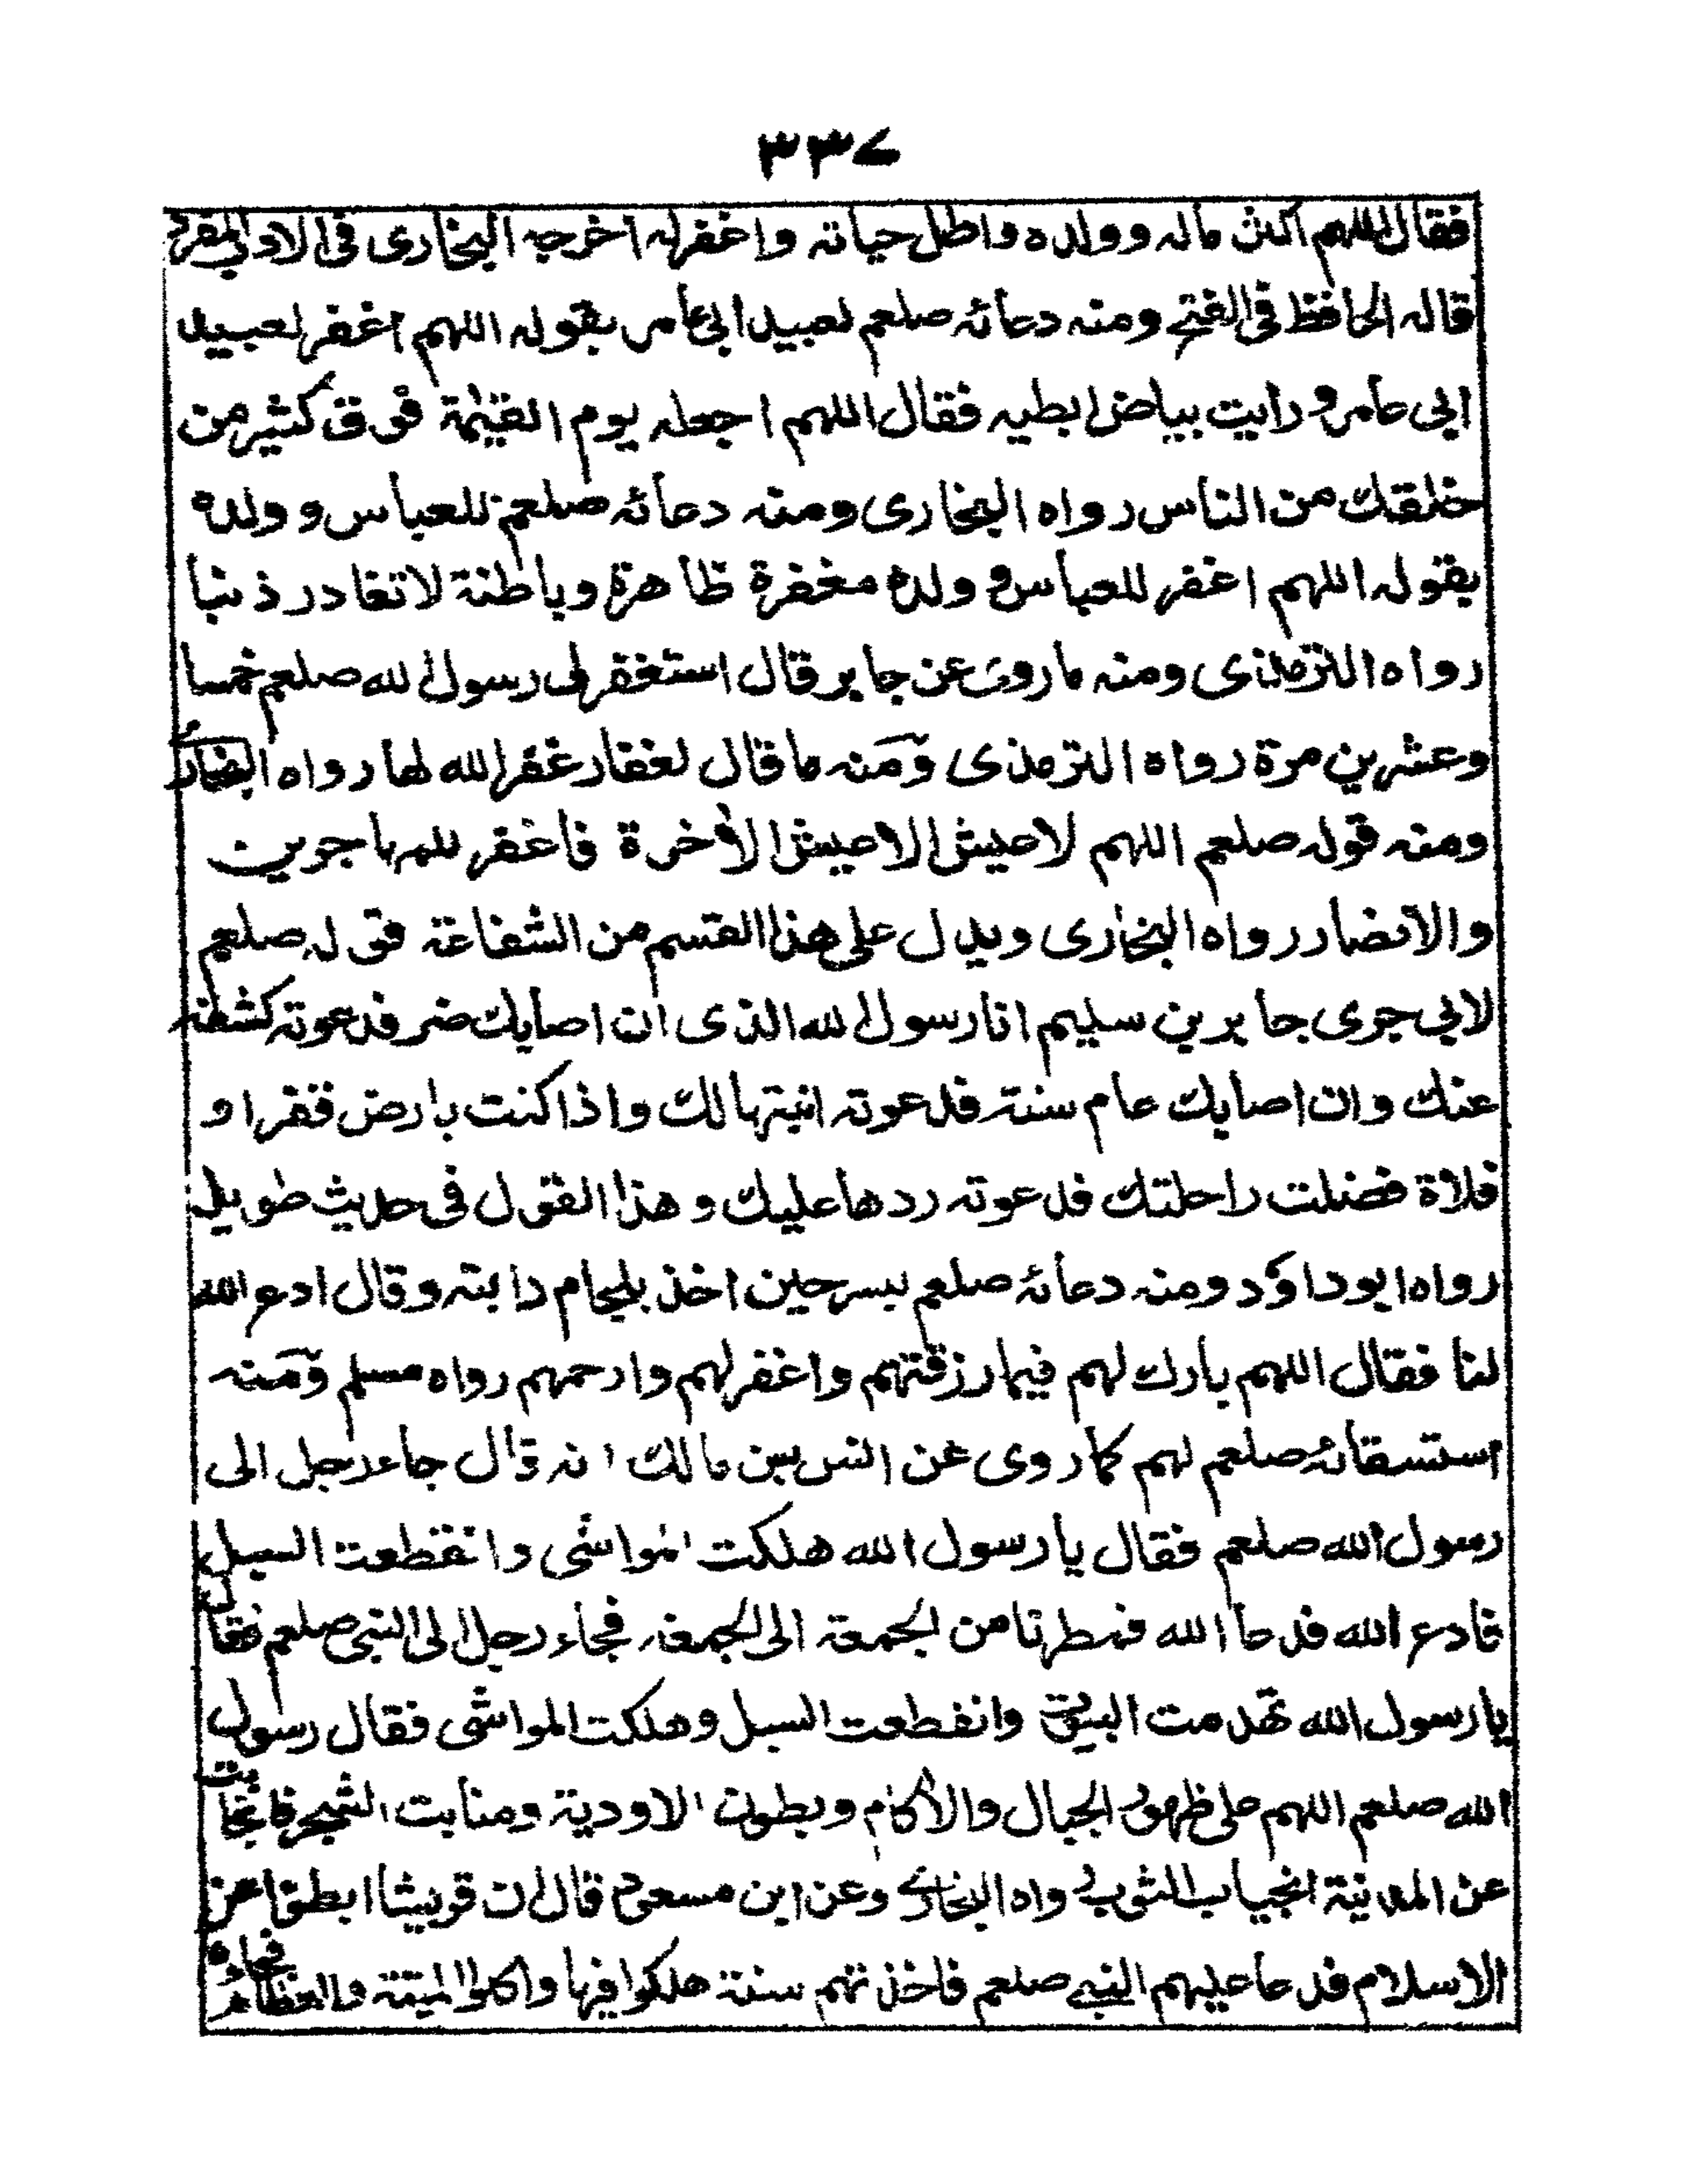 ٣٣٧
فقال اللهم اكثر ماله وولده واطل حياته واغفرله اخرجه البخارى فى الادب المفرد
قاله الحافظ فى الفتح ومنه دعائه صلعم لعبيد ابى عامر بقوله اللهم اغفر لعبيد
ابى عامر ورايت بياض ابطيه فقال اللهم اجعله يوم القيمة فوق كثير من
خلقك من الناس رواه البخارى ومنه دعائه صلعم للعباس وولده
بقوله اللهم اغفر للعباس وولده مغفرة ظاهرة وباطنة لاتغادر ذنبا
رواه الترمذى ومنه ماروى عن جابر قال استغفر لى رسول الله صلعم خمسا
وعشرين مرة رواه الترمذى ومنه ما قال لغفار غفر الله لها رواه البخارى
ومنه قوله صلعم اللهم لاعيش الاعيش الأخرة فاغفر للمهاجرين
والانصار رواه البخارى ويدل على هذا القسم من الشفاعة قوله صلعم
لابي جرى جابر بن سليم انا رسول الله الذى ان اصابك ضر فدعوته كشفه
عنك وان اصابك عام سنة فدعوته انبتها لك واذا كنت بارض قفر او
فلاة فضلت راحلتك فدعوته ردها عليك وهذا القول فى حديث طويل
رواه ابوداؤد ومنه دعائه صلعم لبسر حين اخذ بلجام دابته وقال ادع الله
لنا فقال اللهم بارك لهم فيما رزقتهم واغفر لهم وارحمهم رواه مسلم ومنه
استسقائه صلعم لهم كما روى عن انس بن مالك انه قال جاء رجل الى
رسول الله صلعم فقال يا رسول الله هلكت المواشى وانقطعت السبل
فادع الله فدعا الله فمطرنا من الجمعة الى الجمعة فجاء رجل الى النبى صلعم فقال
يا رسول الله تهدمت البيوت وانقطعت السبل وهلكت المواشى فقال رسول
الله صلعم اللهم على ظهور الجبال والأكام وبطون الاودية ومنابت الشجر فانجابت
عن المدينة انجياب الثوب رواه البخارى وعن ابن مسعود قال ان قريشا ابطؤا عن
الاسلام فدعا عليهم النبى صلعم فاخذتهم سنة هلكوا فيها واكلوا الميتة والعظام فجاءه